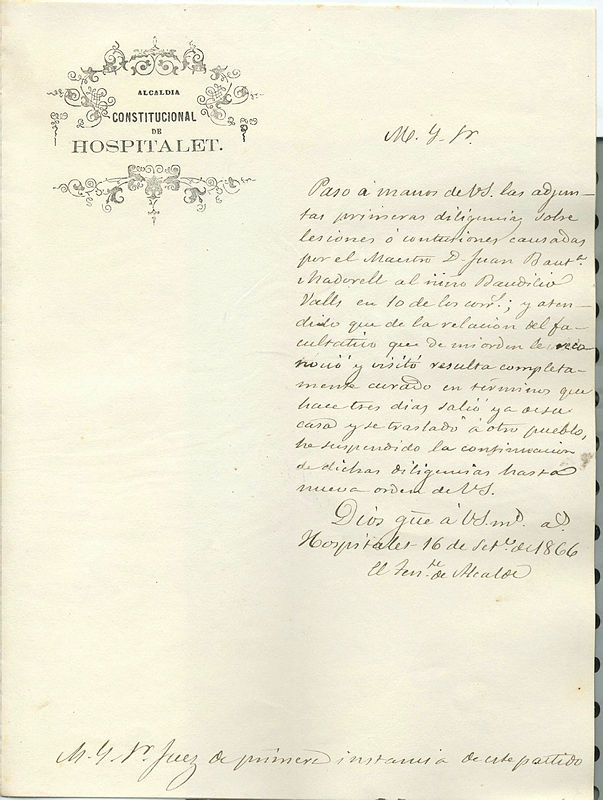 ALCALDIA
CONSTITUCIONAL
DE
HOSPITALET.
M. Y. Sr.
Paso á manos de VS. las adjun-
tas primeras diligencias sobre
lesiones ó contusiones causadas
por el Maestro D. Juan Baut.ª
Madorell al niño Baudilio
Valls en 10 de los corr.ˢ; y aten-
dido que de la relacion del fa-
cultativo que de mi orden le reco-
noció y visitó resulta completa-
mente curado en términos que
hace tres dias salió ya de su
casa y se trasladó á otro pueblo,
he suspendido la continuacion
de dichas diligencias hasta
nueva orden de VS.
Dios gũe á VS. m.ˢ a.ˢ
Hospitalet 16 de Set.ᵉ de 1866
El Ten.ᵗᵉ de Alcalde
M. Y. Sr. Juez de primera instancia de este partido